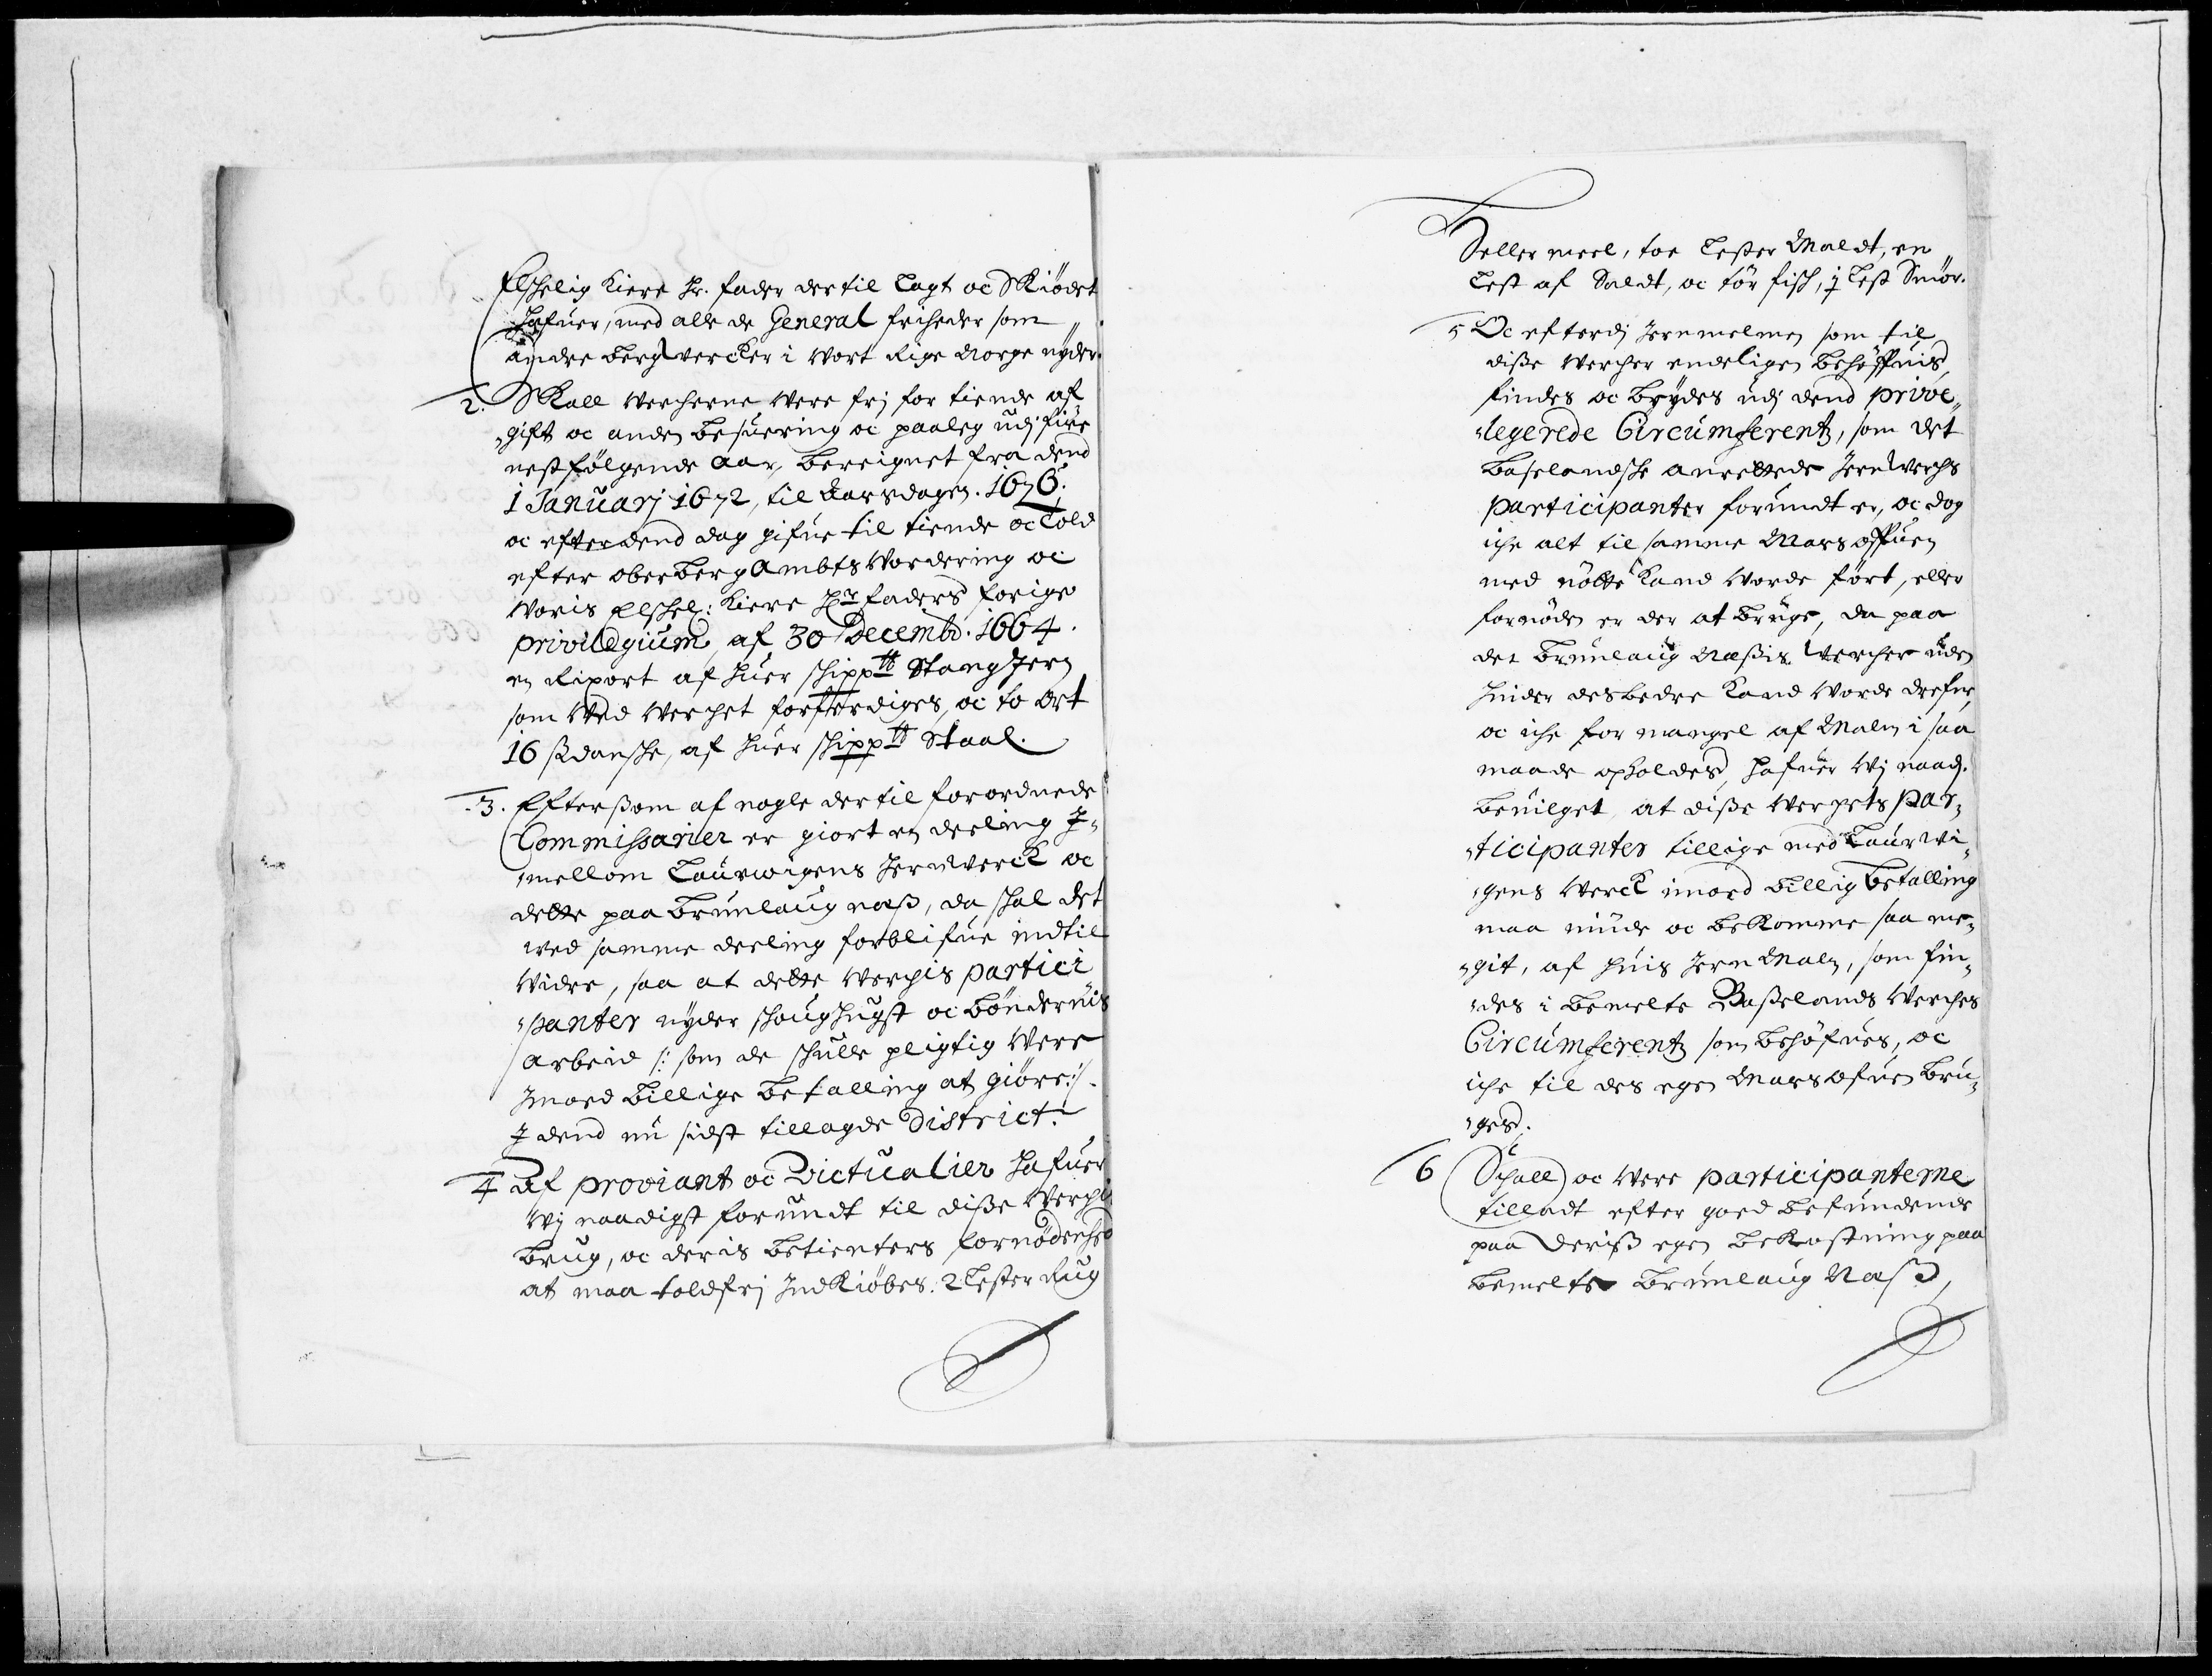 Elschelig Kiere Hr. fader dertil lagt oc Skiödet
Hafuer, med alle de General friheder som
andre bergvercker i Vort Rige Norge nyder.
2. Skall Vercherne Vere frj for tiende af¬
„gift oc anden besuering oc paaleg udj fire
nestfølgende Aar, bereignet fra dend
1 Januarj 1672, til Aarsdagen. 1676.
oc efter dend dag gifue til tiende oc Told
efter oberberg Ambts Vordering oc
Voris Elschel: Kiere Hr faders forige
privilegium, af 30 Decembr. 1664.
en Rixort af huer schipp℔ Stang Jern
som Ved Verchet forferdiges, oc to ort
16 ß danske, af huer schipp℔ Staal.
3. Eftersom af nogle dertil forordnede
Commissarier er giort en deeling J¬
„mellom Laurwigens Jernverck oc
dette paa Brunlaugnæß, da schal det
ved samme deeling forblifue indtil
Videre, saa at dette Verchis partici
„panter nyder schoughugst oc bönderniß
arbeid /: som de schulle pligtig Vere
Jmoed billige betalling at giöre :/
J dend nu sidst tillagde District.
4 Af proviant oc Victualier hafuer
Vj naadigst forundt til disse Verchis
brug, oc deris betienters fornödenhed
at maa toldfrj Jndkiöbes. 2 Lester Rug
Eller meel, toe Lester Maldt, en
Lest af Saldt, oc tör fisch, ½ Lest Smör.
5 Oc efterdj Jernmelmen som til
disse Vercher endeligen behøffuis,
findes oc brydes udj dend prive„
„legerede Circumferentz, som det
Baselandske anrettede JernVerchs
participanter forundt er, oc dog
iche alt til samme Marsoffuen
med nötte kand Vorde fört, eller
fornöden er der at bruge, da paa
det Brunlaug Næssis Vercher uden
hinder desbedre kand Vorde drefne,
oc iche for mangel af Malm i saa
maade opholdes, hafuer Vj naadj.
beuilget, at disse Verchets par„
„ticipanter tillige med Laurwi„
„gens Verck imoed billig betalling
maa niude oc bekomme saa me„
„git, af huis JernMalm, som fin„
„des i bemelte Baßelands Verches
Circumferentz som behöfues, oc
iche til des egen Marsofuen bru„
„ges.
6 Schall oc Vere participanterne
tilladt efter goed befindende
paa deriß egen bekostning paa
bemelte Brunlaug Næß,